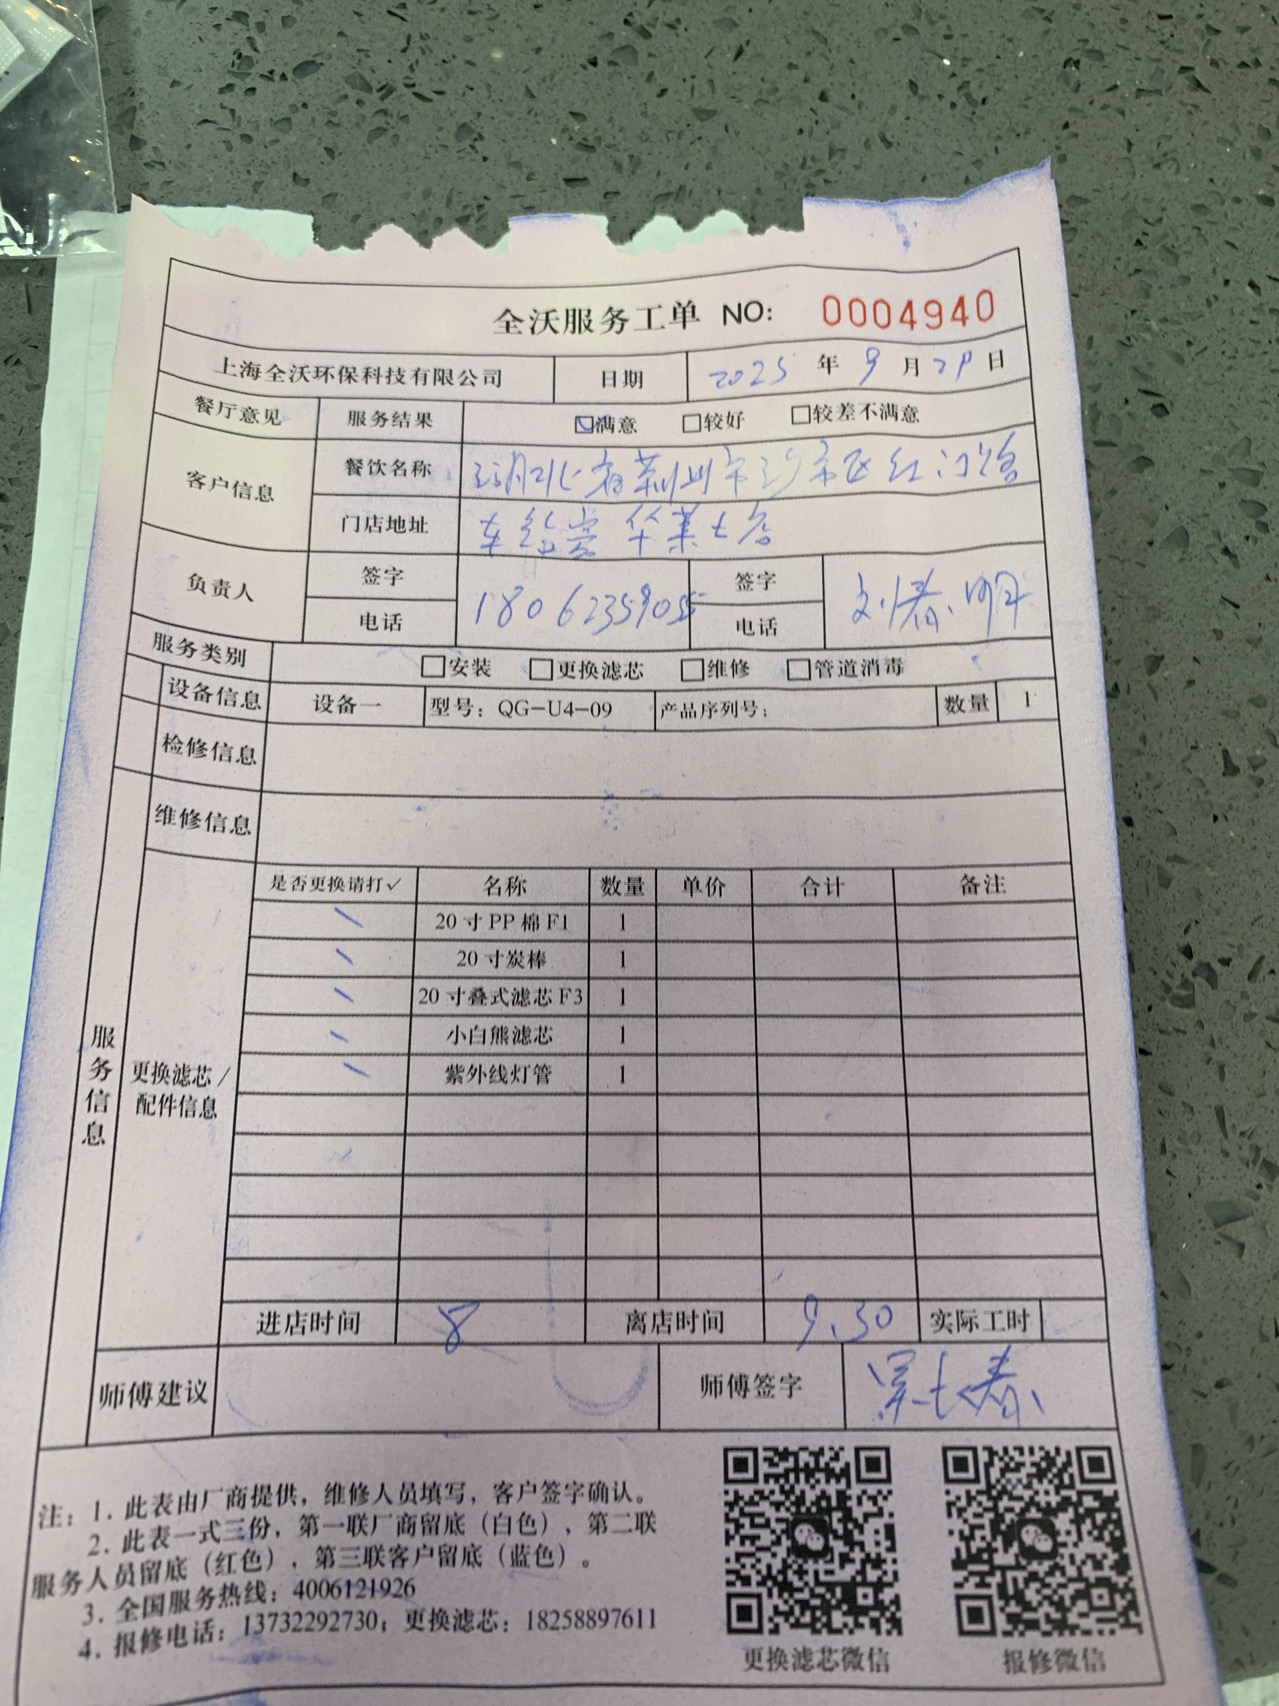 全沃服务工单 NO: 0004940
上海全沃环保科技有限公司 日期 2025 年 9 月 29 日
餐厅意见 服务结果 ☑满意 □较好 □较差不满意
客户信息 餐饮名称 湖北省荆州市沙市区红门路
门店地址 华莱士店
负责人 签字 电话 18062359055 签字 电话 刘春明
服务类别 □安装 □更换滤芯 □维修 □管道消毒
设备信息 设备一 型号：QG-U4-09 产品序列号： 数量 1
检修信息
维修信息
服务信息
更换滤芯/配件信息
是否更换请打✓ 名称 数量 单价 合计 备注
20寸PP棉F1 1
20寸炭棒 1
20寸叠式滤芯F3 1
小白熊滤芯 1
紫外线灯管 1
进店时间 8 离店时间 9.30 实际工时
师傅建议 师傅签字
注：1. 此表由厂商提供，维修人员填写，客户签字确认。
2. 此表一式三份，第一联厂商留底（白色）、第二联
服务人员留底（红色）、第三联客户留底（蓝色）。
3. 全国服务热线：4006121926
4. 报修电话：13732292730；更换滤芯：18258897611
更换滤芯微信 报修微信